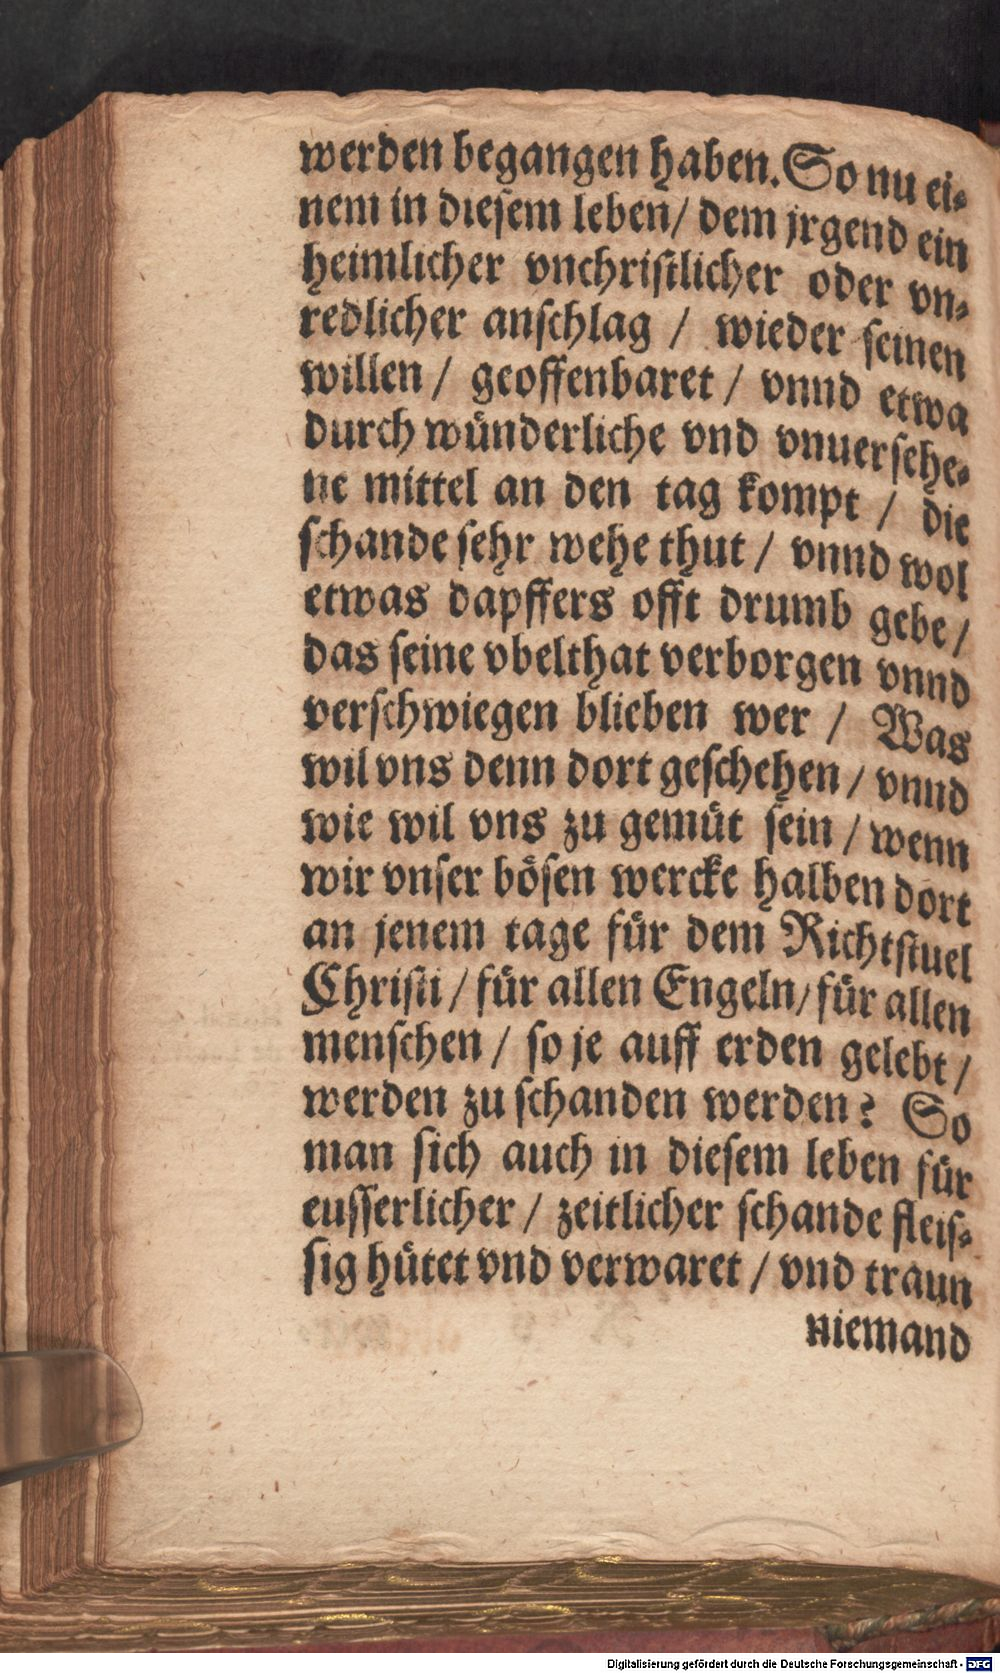 werden begangen haben. So nu ei-
nem in diesem leben/ dem jrgend ein
heimlicher vnchristlicher oder vn-
redlicher anschlag / wieder seinen
willen / geoffenbaret / vnnd etwa
durch wünderliche vnd vnuersehe-
ne mittel an den tag kompt / die
schande sehr wehe thut / vnnd wol
etwas dapffers offt drumb gebe /
das seine vbelthat verborgen vnnd
verschwiegen blieben wer / Was
wil vns denn dort geschehen / vnnd
wie wil vns zu gemüt sein / wenn
wir vnser bösen wercke halben dort
an jenem tage für dem Richtstuel
Christi / für allen Engeln/ für allen
menschen / so je auff erden gelebt /
werden zu schanden werden? So
man sich auch in diesem leben für
eusserlicher / zeitlicher schande fleis-
sig hütet vnd verwaret / vnd traun
niemand
Digitalisierung gefördert durch die Deutsche Forschungsgemeinschaft - DFG